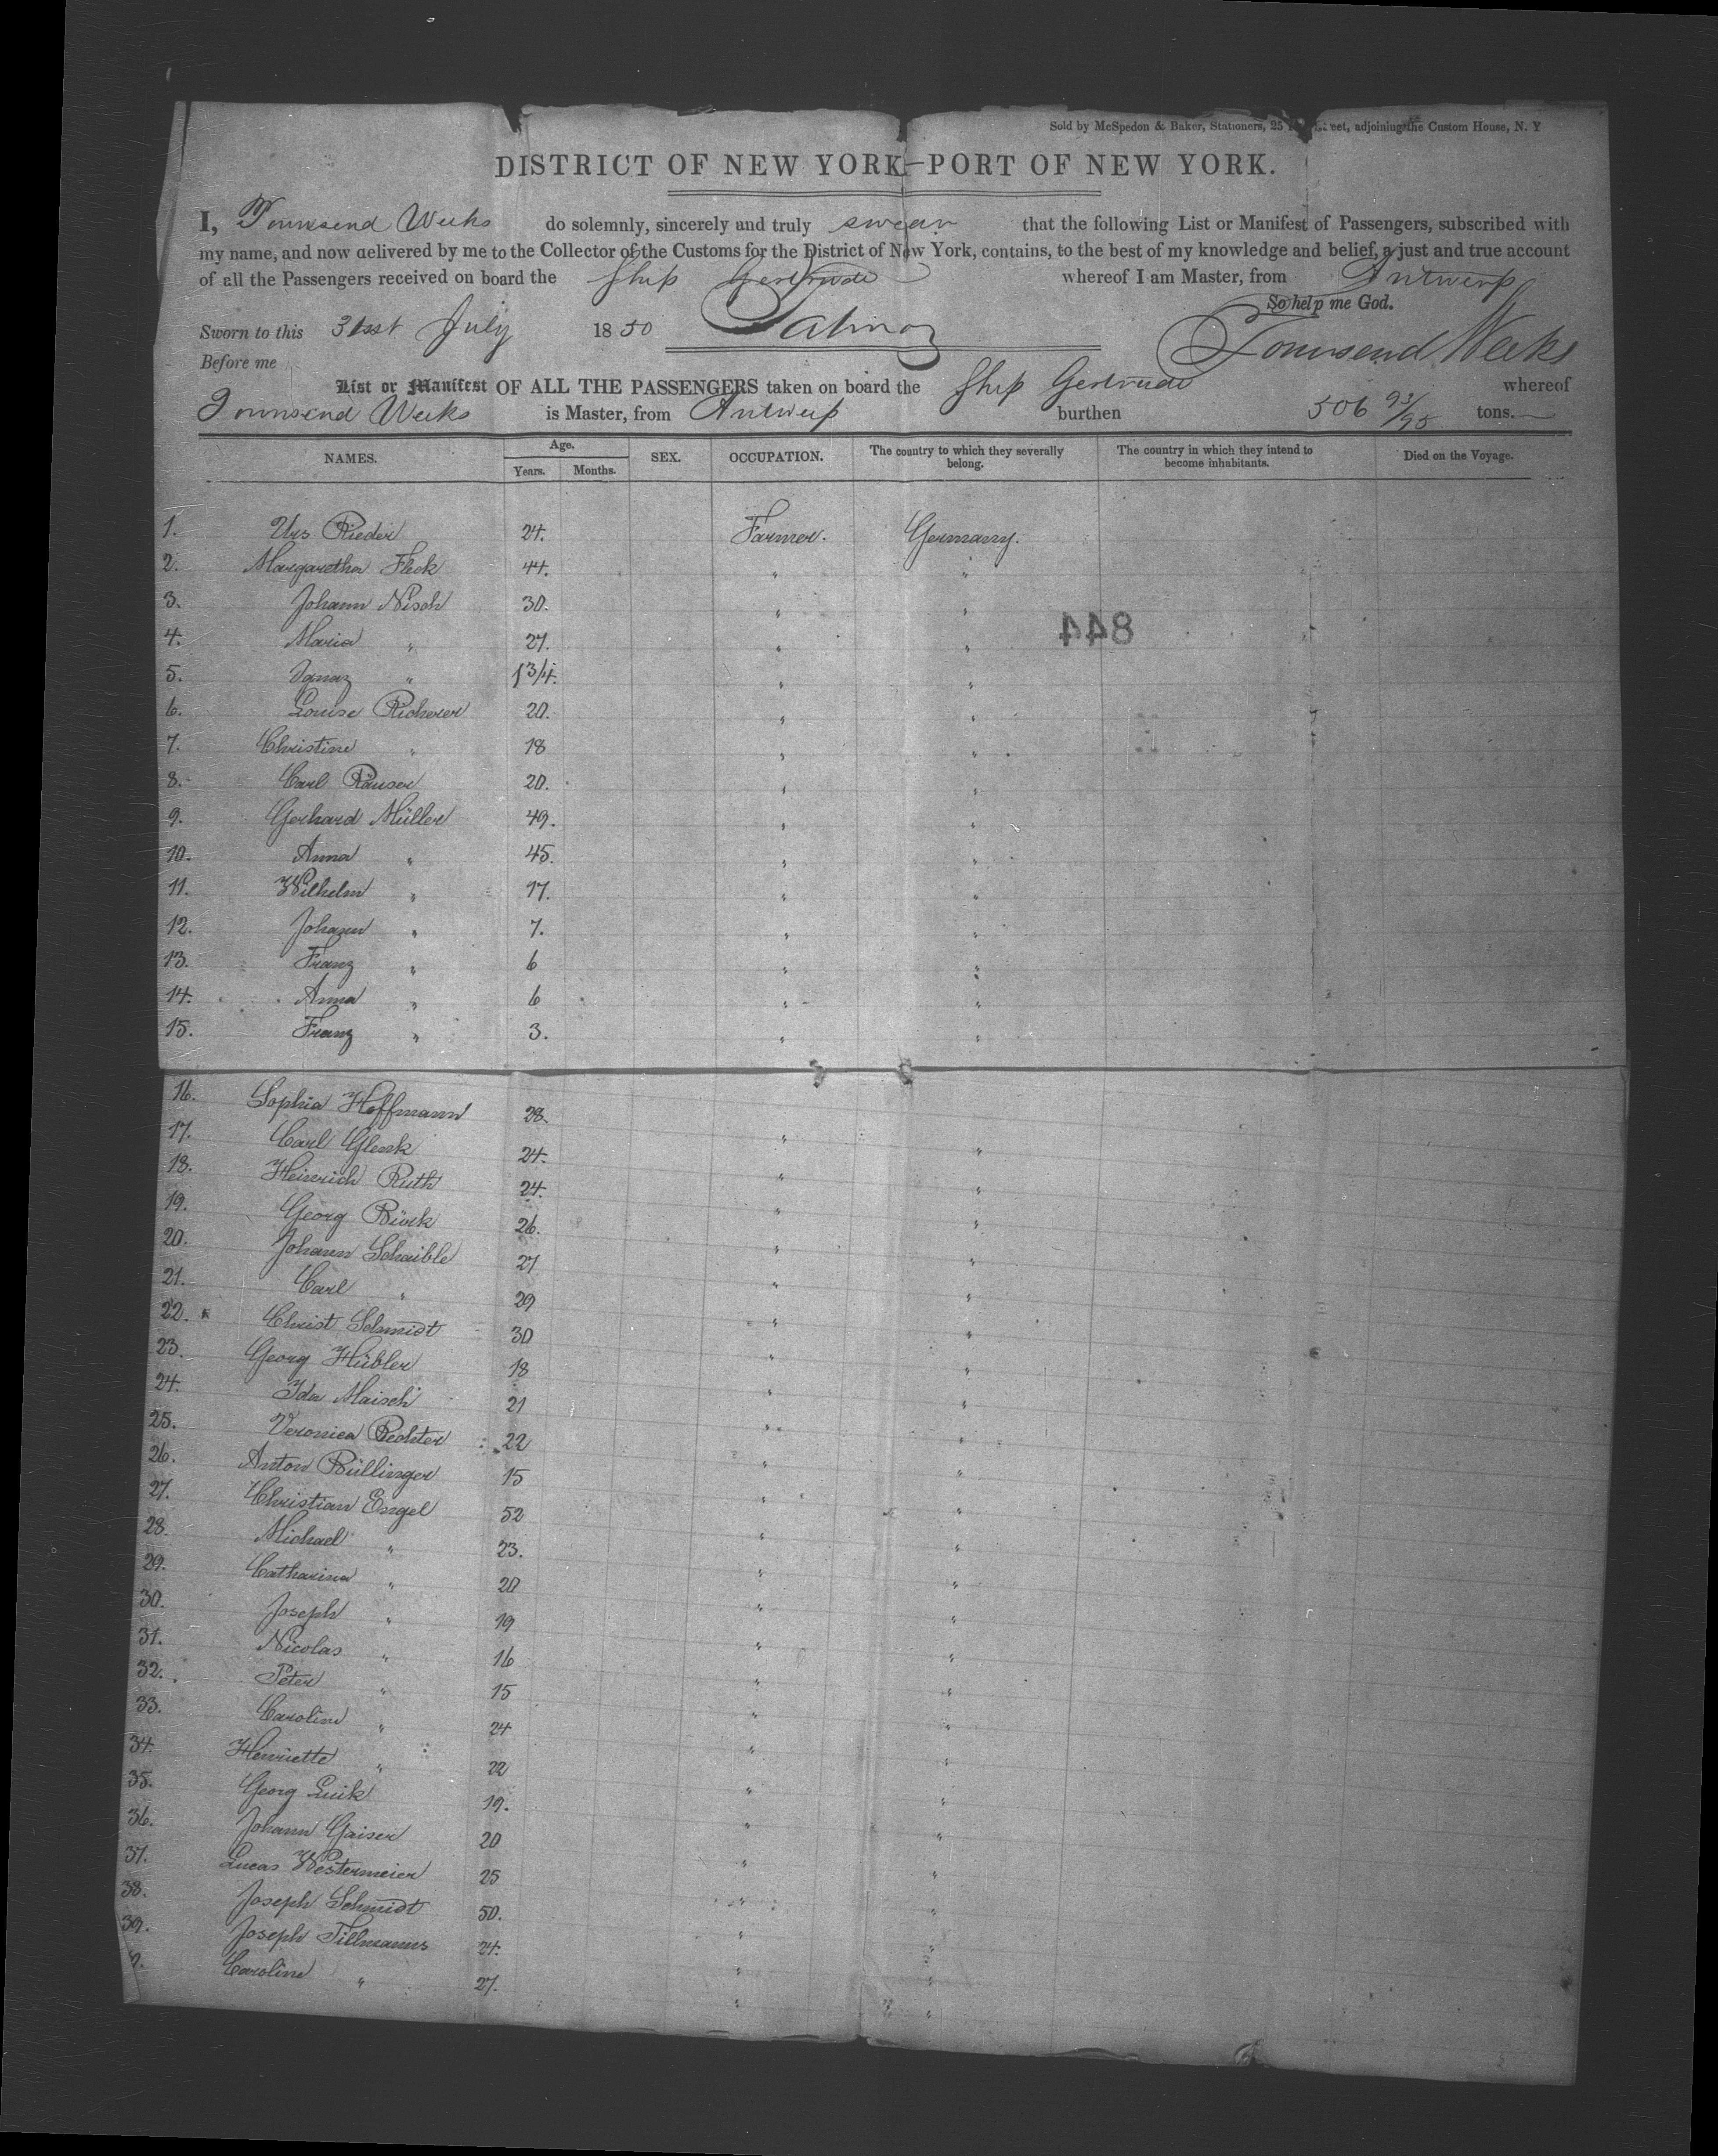 Sold by McSpedon & Baker, Stationers, 25 street, adjoining the Custom House, N. Y
DISTRICT OF NEW YORK—PORT OF NEW YORK.
I, Townsend Weeks do solemnly, sincerely and truly swear that the following List or Manifest of Passengers, subscribed with
my name, and now delivered by me to the Collector of the Customs for the District of New York, contains, to the best of my knowledge and belief, a just and true account
of all the Passengers received on board the Ship Gertrude whereof I am Master, from Antwerp
So help me God.
Sworn to this 31st July 1850 Townsend Weeks
Before me
List or Manifest OF ALL THE PASSENGERS taken on board the Ship Gertrude whereof
Townsend Weeks is Master, from Antwerp burthen 506 93/95 tons.
NAMES. Age. Years. Months. SEX. OCCUPATION. The country to which they severally belong. The country in which they intend to become inhabitants. Died on the Voyage.
1. Urs Rieder 24. Farmer. Germany.
2. Margaretha Fleck 44. " "
3. Johann Nisch 30. " "
844
4. Maria " 27. " "
5. Ignaz " 1 3/4. " "
6. Louise Richerer 20. " "
7. Christine " 18 " "
8. Carl Räuser 20. " "
9. Gerhard Müller 49. " "
10. Anna " 45. " "
11. Wilhelm " 17. " "
12. Johann " 7. " "
13. Franz " 6 " "
14. Anna " 6 " "
15. Franz " 3. " "
16. Sophia Hoffmann 28. " "
17. Carl Glenk 24. " "
18. Heinrich Ruth 24. " "
19. Georg Bürk 26. " "
20. Johann Schaible 27 " "
21. Carl " 29 " "
22. Christ Schmidt 30 " "
23. Georg Hübler 18 " "
24. Ida Maisch 21 " "
25. Veronica Rechter 22 " "
26. Anton Büllinger 15 " "
27. Christian Engel 52 " "
28. Michael " 23. " "
29. Catharina " 20 " "
30. Joseph " 19 " "
31. Nicolas " 16 " "
32. Peter " 15 " "
33. Caroline " 24 " "
34. Henriette " 22 " "
35. Georg Luik 19. " "
36. Johann Gaiser 20 " "
37. Lucas Westermeier 25 " "
38. Joseph Schmidt 50. " "
39. Joseph Tillmanns 24. " "
Caroline " 27. " "